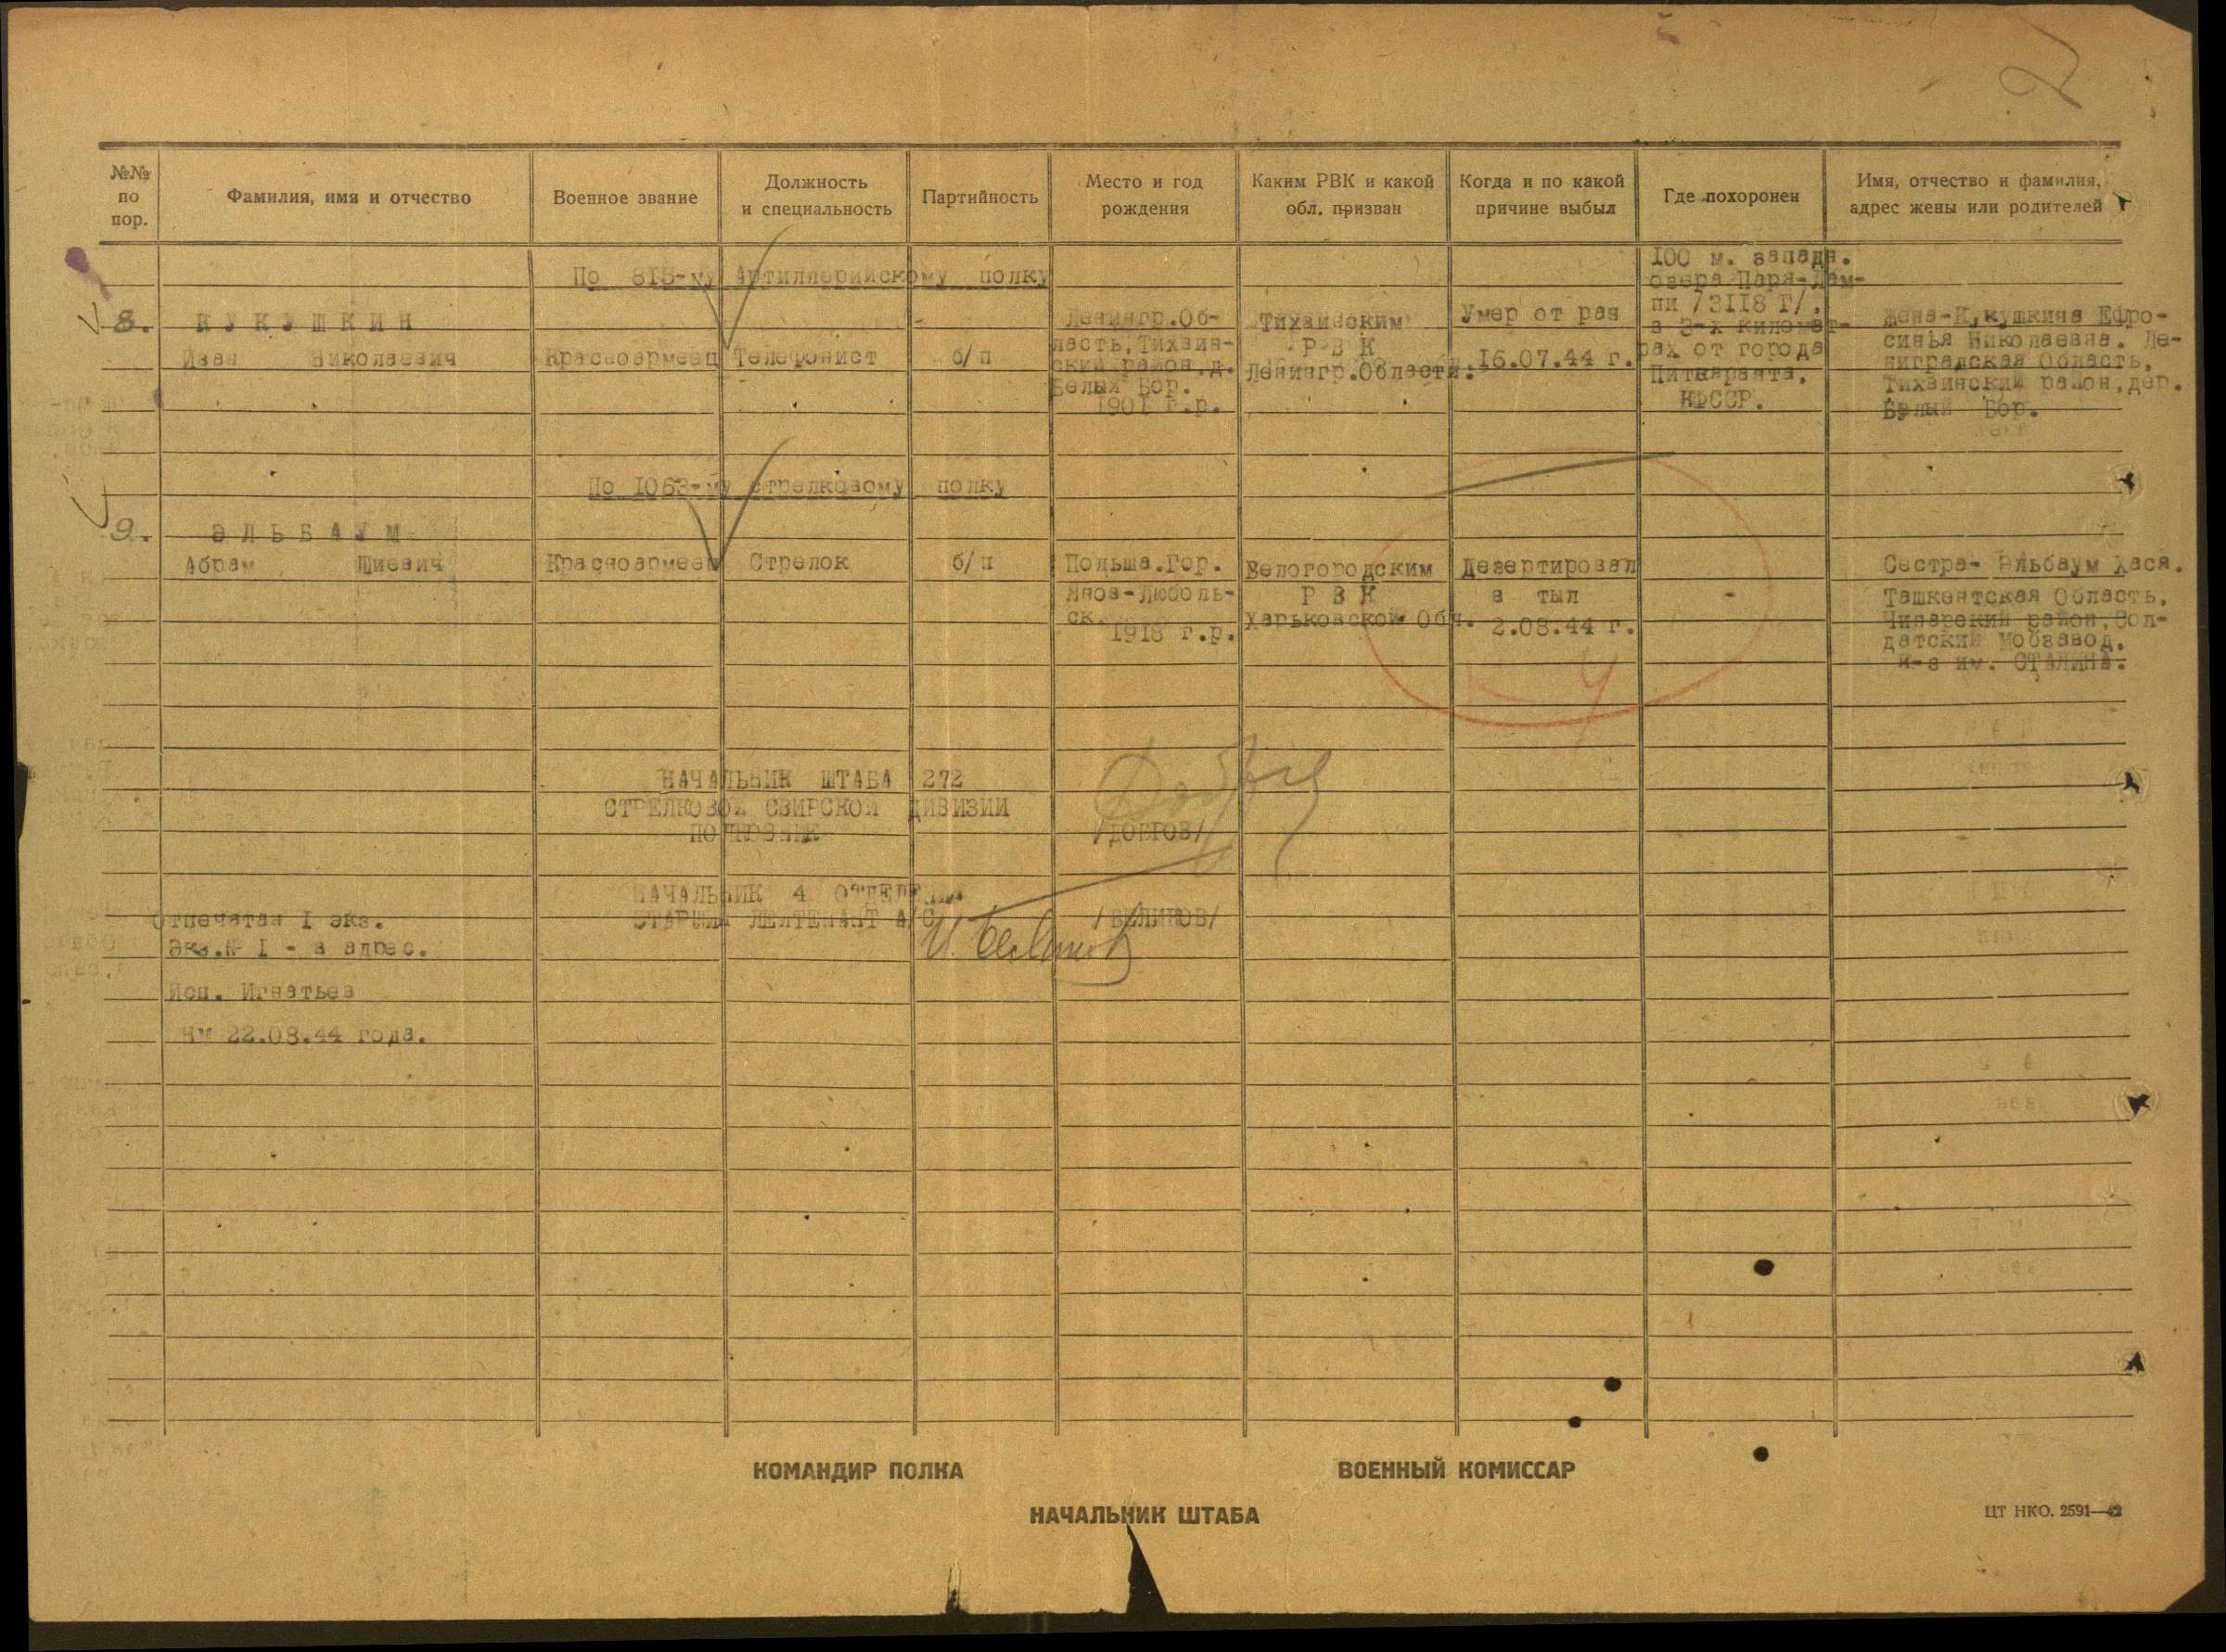 2
№№ по пор.
Фамилия, имя и отчество
Военное звание
Должность и специальность
Партийность
Место и год рождения
Каким РВК и какой обл. призван
Когда и по какой причине выбыл
Где похоронен
Имя, отчество и фамилия, адрес жены или родителей
По 815-му Артиллерийскому полку
8.
КУКУШКИН
Иван Николаевич
Красноармеец
Телефонист
б/п
Ленингр.Об-
ласть,Тихвин-
ский район,д.
Белый Бор.
1901 г.р.
Тихвинским
Р В К
Ленингр.Области.
Умер от ран
16.07.44 г.
100 м. западн.
озера Паря-Лам-
пи /3118 Г/.
в 3-х километ-
рах от города
Питкяранта.
КФССР.
Жена-Кукушкина Ефро-
синья Николаевна. Ле-
нинградская Область,
Тихвинский район,дер.
Белый Бор.
По 1063-му стрелковому полку
9.
ЭЛЬБАУМ
Абрам Шиевич
Красноармеец
Стрелок
б/п
Польша.Гор.
Янов-Люболь-
ск.
1918 г.р.
Белогородским
Р В К
Харьковской Обл.
Дезертировал
в тыл
2.08.44 г.
-
Сестра- Эльбаум Хася.
Ташкентская Область,
район,Сол-
датский Мобзавод.
к-з им. СТАЛИНА.
НАЧАЛЬНИК ШТАБА 272
СТРЕЛКОВОЙ СВИРСКОЙ ДИВИЗИИ
ПОЛКОВНИК /ДОЕГОВ/
НАЧАЛЬНИК 4 ОТДЕЛЕ
СТАРШИЙ ЛЕЙТЕНАНТ А/С /БЕЛИКОВ/
Отпечатан 1 экз.
Экз.№ 1 - в адрес.
Исп. Игнатьев
нм 22.08.44 года.
КОМАНДИР ПОЛКА
ВОЕННЫЙ КОМИССАР
НАЧАЛЬНИК ШТАБА
ЦТ НКО. 2591—42